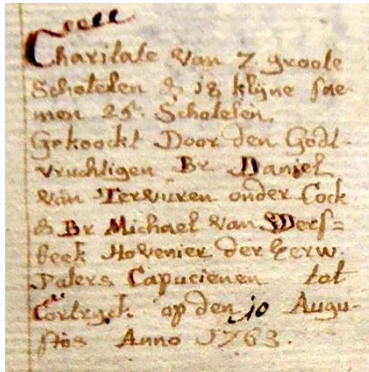 Charitate van 7 groote
Schotelen & 18 klijne sae-
men 25. Schotelen
Gekoockt Door den Godt-
vruchtigen Br Daniel
van Tervuren onder Cock
& Br Michael van Wers=
beek Hovenier der Eerw.
Paters Capucienen tot
Cortryck op den 10 Augu-
stos Anno 1763.